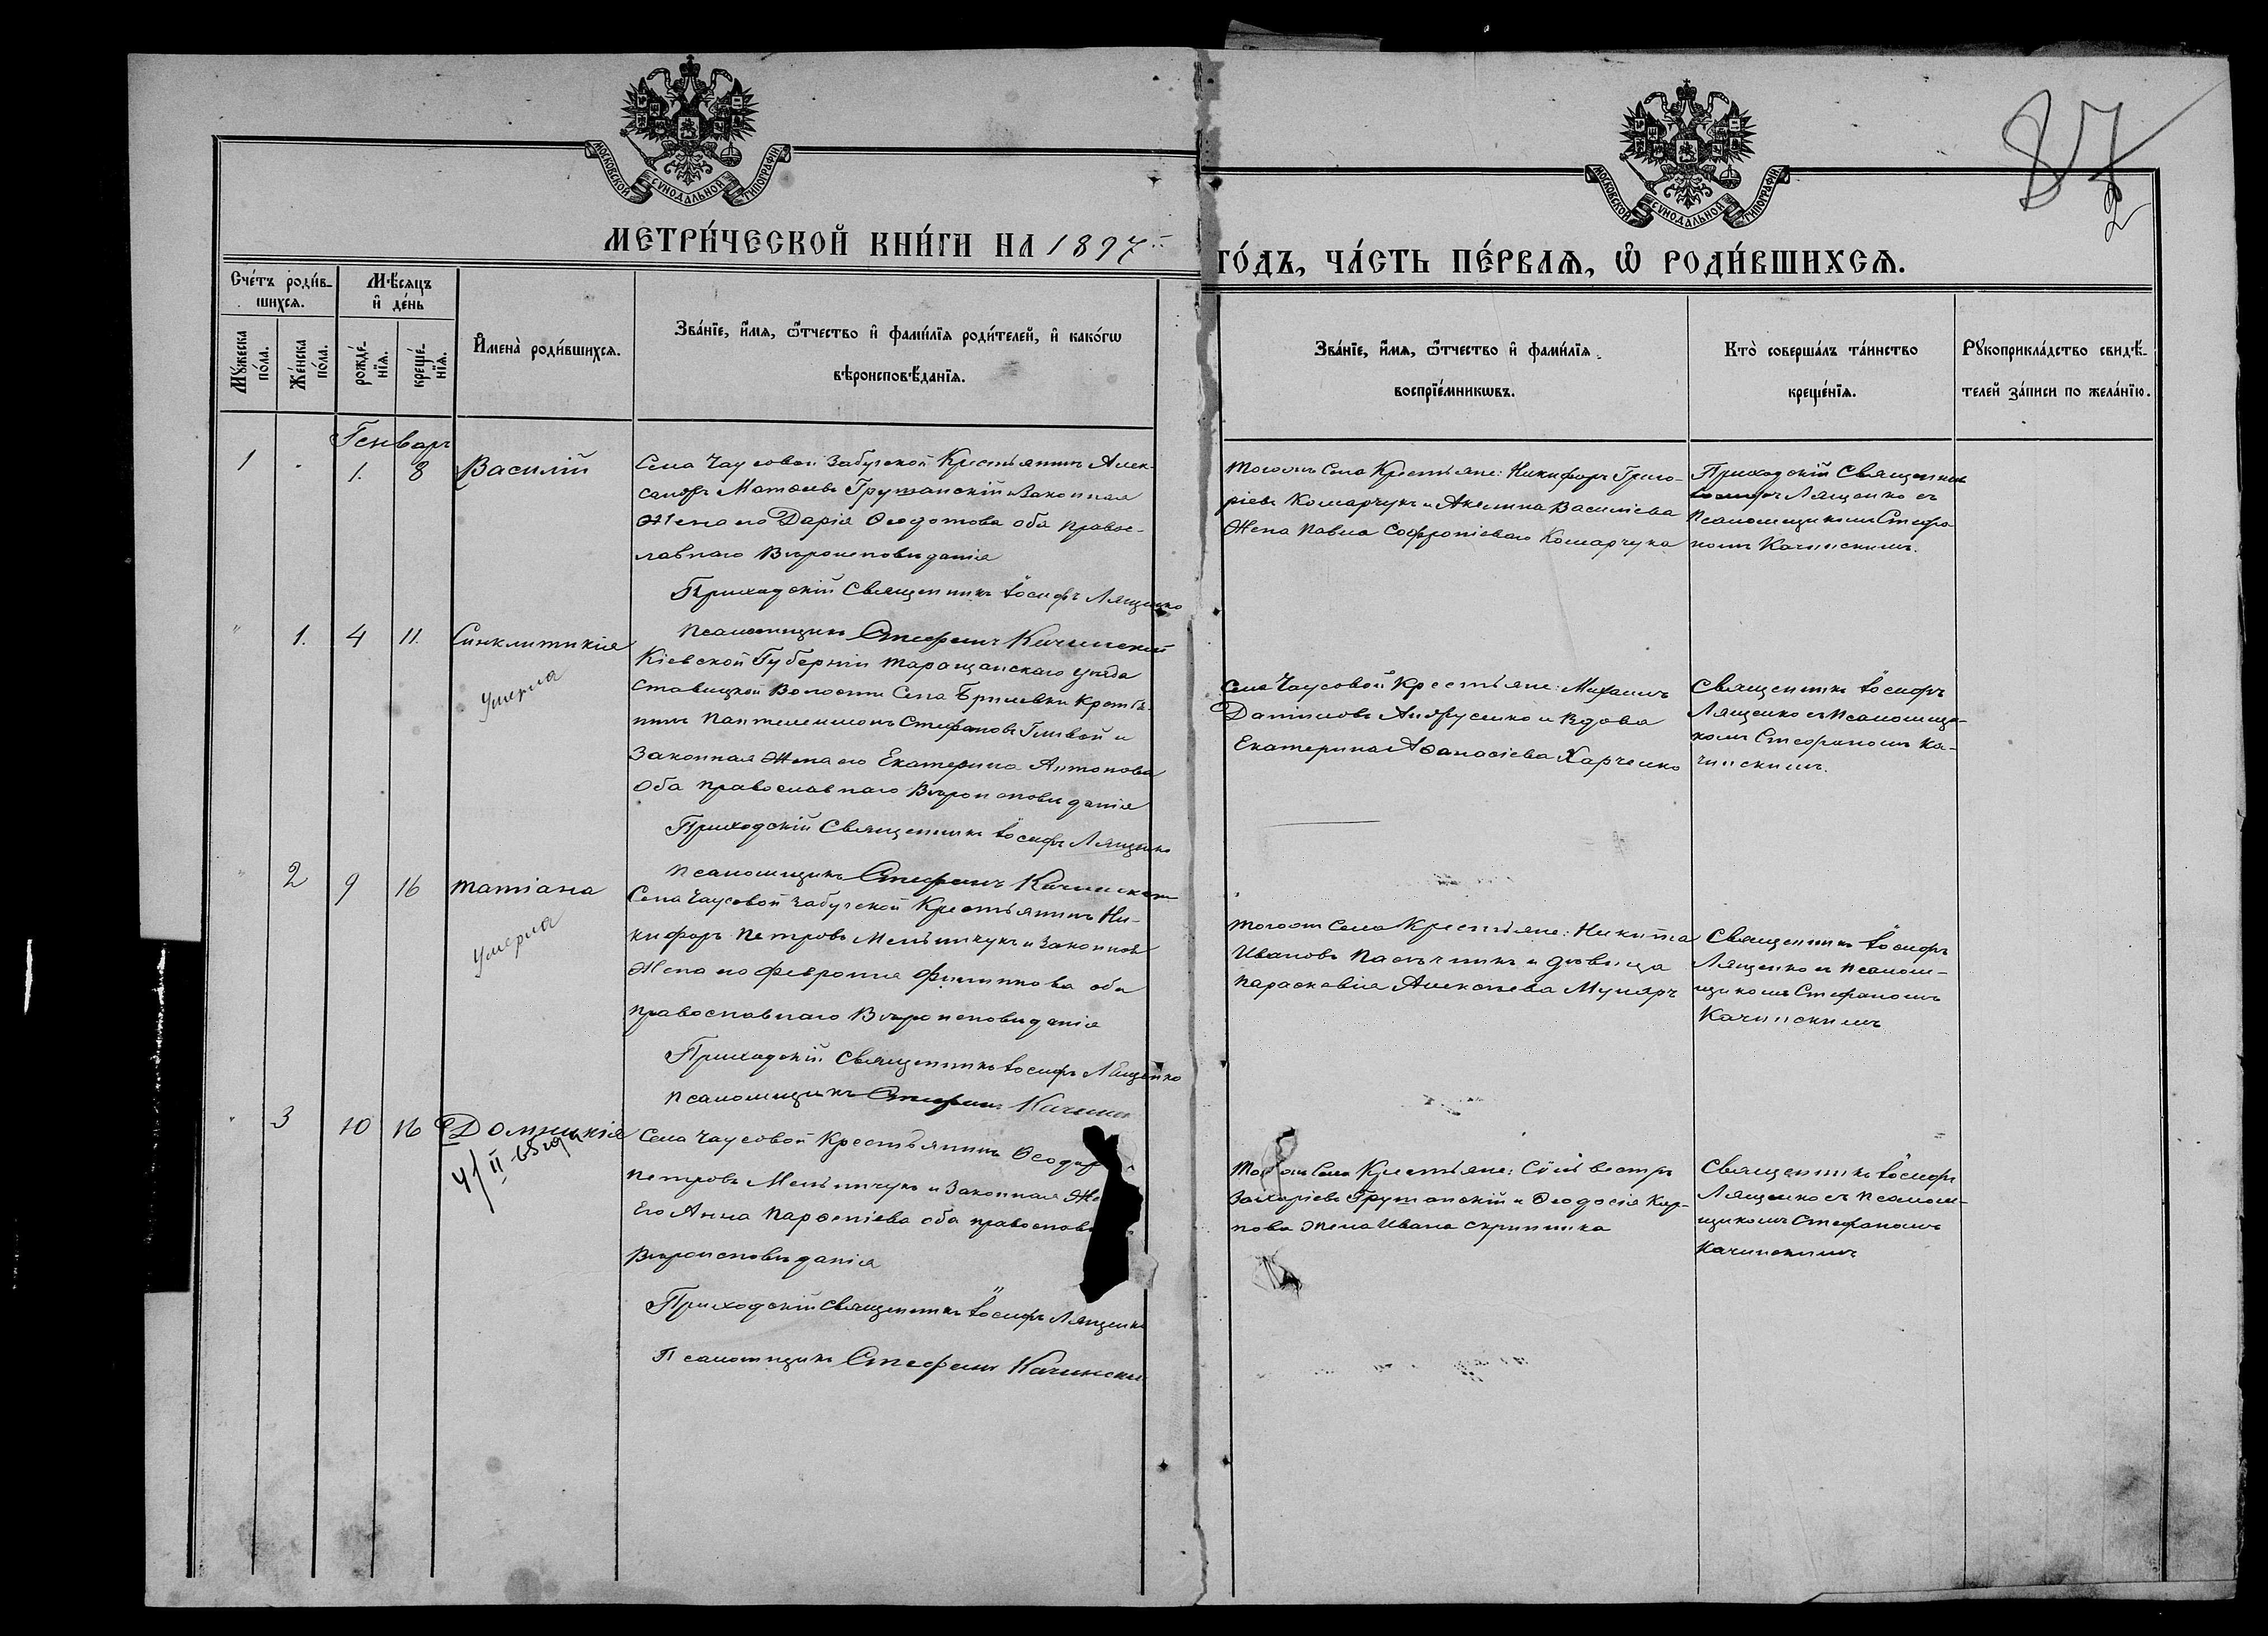 МОСКОВСКОЙ СѴНОДАЛЬНОЙ ТИПОГРАФІИ
МОСКОВСКОЙ СѴНОДАЛЬНОЙ ТИПОГРАФІИ
87
2
МЕТРИ́ЧЕСКОЙ КНИ́ГИ НА 1897
ГО́ДЪ, ЧА́СТЬ ПЕ́РВАѦ, Ѡ РОДИ́ВШИХСѦ.
Сче́тъ роди́в-
шихсѧ.
Мѣ́сѧцъ
и҆ де́нь
Мꙋ́жеска
по́ла.
Же́нска
по́ла.
рожде́-
нїѧ.
креще́-
нїѧ.
И҆мена̀ роди́вшихсѧ.
Зва́нїе, и҆́мѧ, ѻ҆́тчество и҆ фами́лїѧ роди́телей, и҆ како́гѡ
вѣроисповѣ́данїѧ.
Зва́нїе, и҆́мѧ, ѻ҆́тчество и҆ фами́лїѧ
воспрїе́мникѡвъ.
Кто̀ соверша́лъ та́инство
креще́нїѧ.
Рꙋкоприкла́дство свидѣ́-
телей за́писи по жела́нїю.
Генварь
1 1. 8 Василій
Села Чаусовой Забугской Крестьянинъ Алек-
сандръ Матѳеевъ Грушанскій и Законная
Жена его Дарія Ѳеодотова оба правос-
лавнаго Вѣроисповѣданія
Приходскій Священникъ Іосифъ Лященко
Псаломщикъ Стефанъ Качинскій
Тогожъ Села Крестьяне: Никифоръ Григо-
ріевъ Комарчукъ и Акилина Василіева
Жена Павла Софроніеваго Комарчука
Приходскій Священникъ
Іосифъ Лященко съ
Псаломщикомъ Стефа-
номъ Качинскимъ.
1. 4 11. Синклитикія
Умерла
Кіевской Губерніи Таращанскаго уѣзда
Ставищкой Волости Села Брилевки Крестья-
нинъ Пантелеимонъ Стефановъ и
Законная Жена его Екатерина Антонова
Оба православнаго Вѣроисповѣданія
Приходскій Священникъ Іосифъ Лященко
Псаломщикъ Стефанъ Качинскій
Села Чаусовой Крестьяне: Михаилъ
Даниловъ Андрусенко и Вдова
Екатерина Аѳанасіева Харченко
Священникъ Іосифъ
Лященко съ Псаломщи-
комъ Стефаномъ Ка-
чинскимъ.
2 9 16 Татіана
Умерла
Села Чаусовой Забугской Крестьянинъ Ни-
кифоръ Петровъ Мельничукъ и Законная
Жена его Февронія Филиппова оба
православнаго Вѣроисповѣданія
Приходскій Священникъ Іосифъ Лященко
Псаломщикъ Стефанъ Качинс
Тогожъ Села Крестьяне: Никита
Ивановъ Пасѣчникъ и дѣвица
Параскевія Алексѣева Муляръ
Священникъ Іосифъ
Лященко съ Псалом-
щикомъ Стефаномъ
Качинскимъ
3 10 16 Домникія
Села Чаусовой Крестьянинъ Ѳеодоръ
Петровъ Мельничукъ и Законная Же
Его Анна Парѳеніева оба православ
Вѣроисповѣданія
Приходскій Священникъ Іосифъ Лященко
Псаломщикъ Стефанъ Качински
Села Крестьяне: Сильвестръ
Захаріевъ Грушанскій и Ѳеодосія Кар-
пова Жена Ивана Скрипника
Священникъ Іосифъ
Лященко съ Псалом-
щикомъ Стефаномъ
Качинскимъ